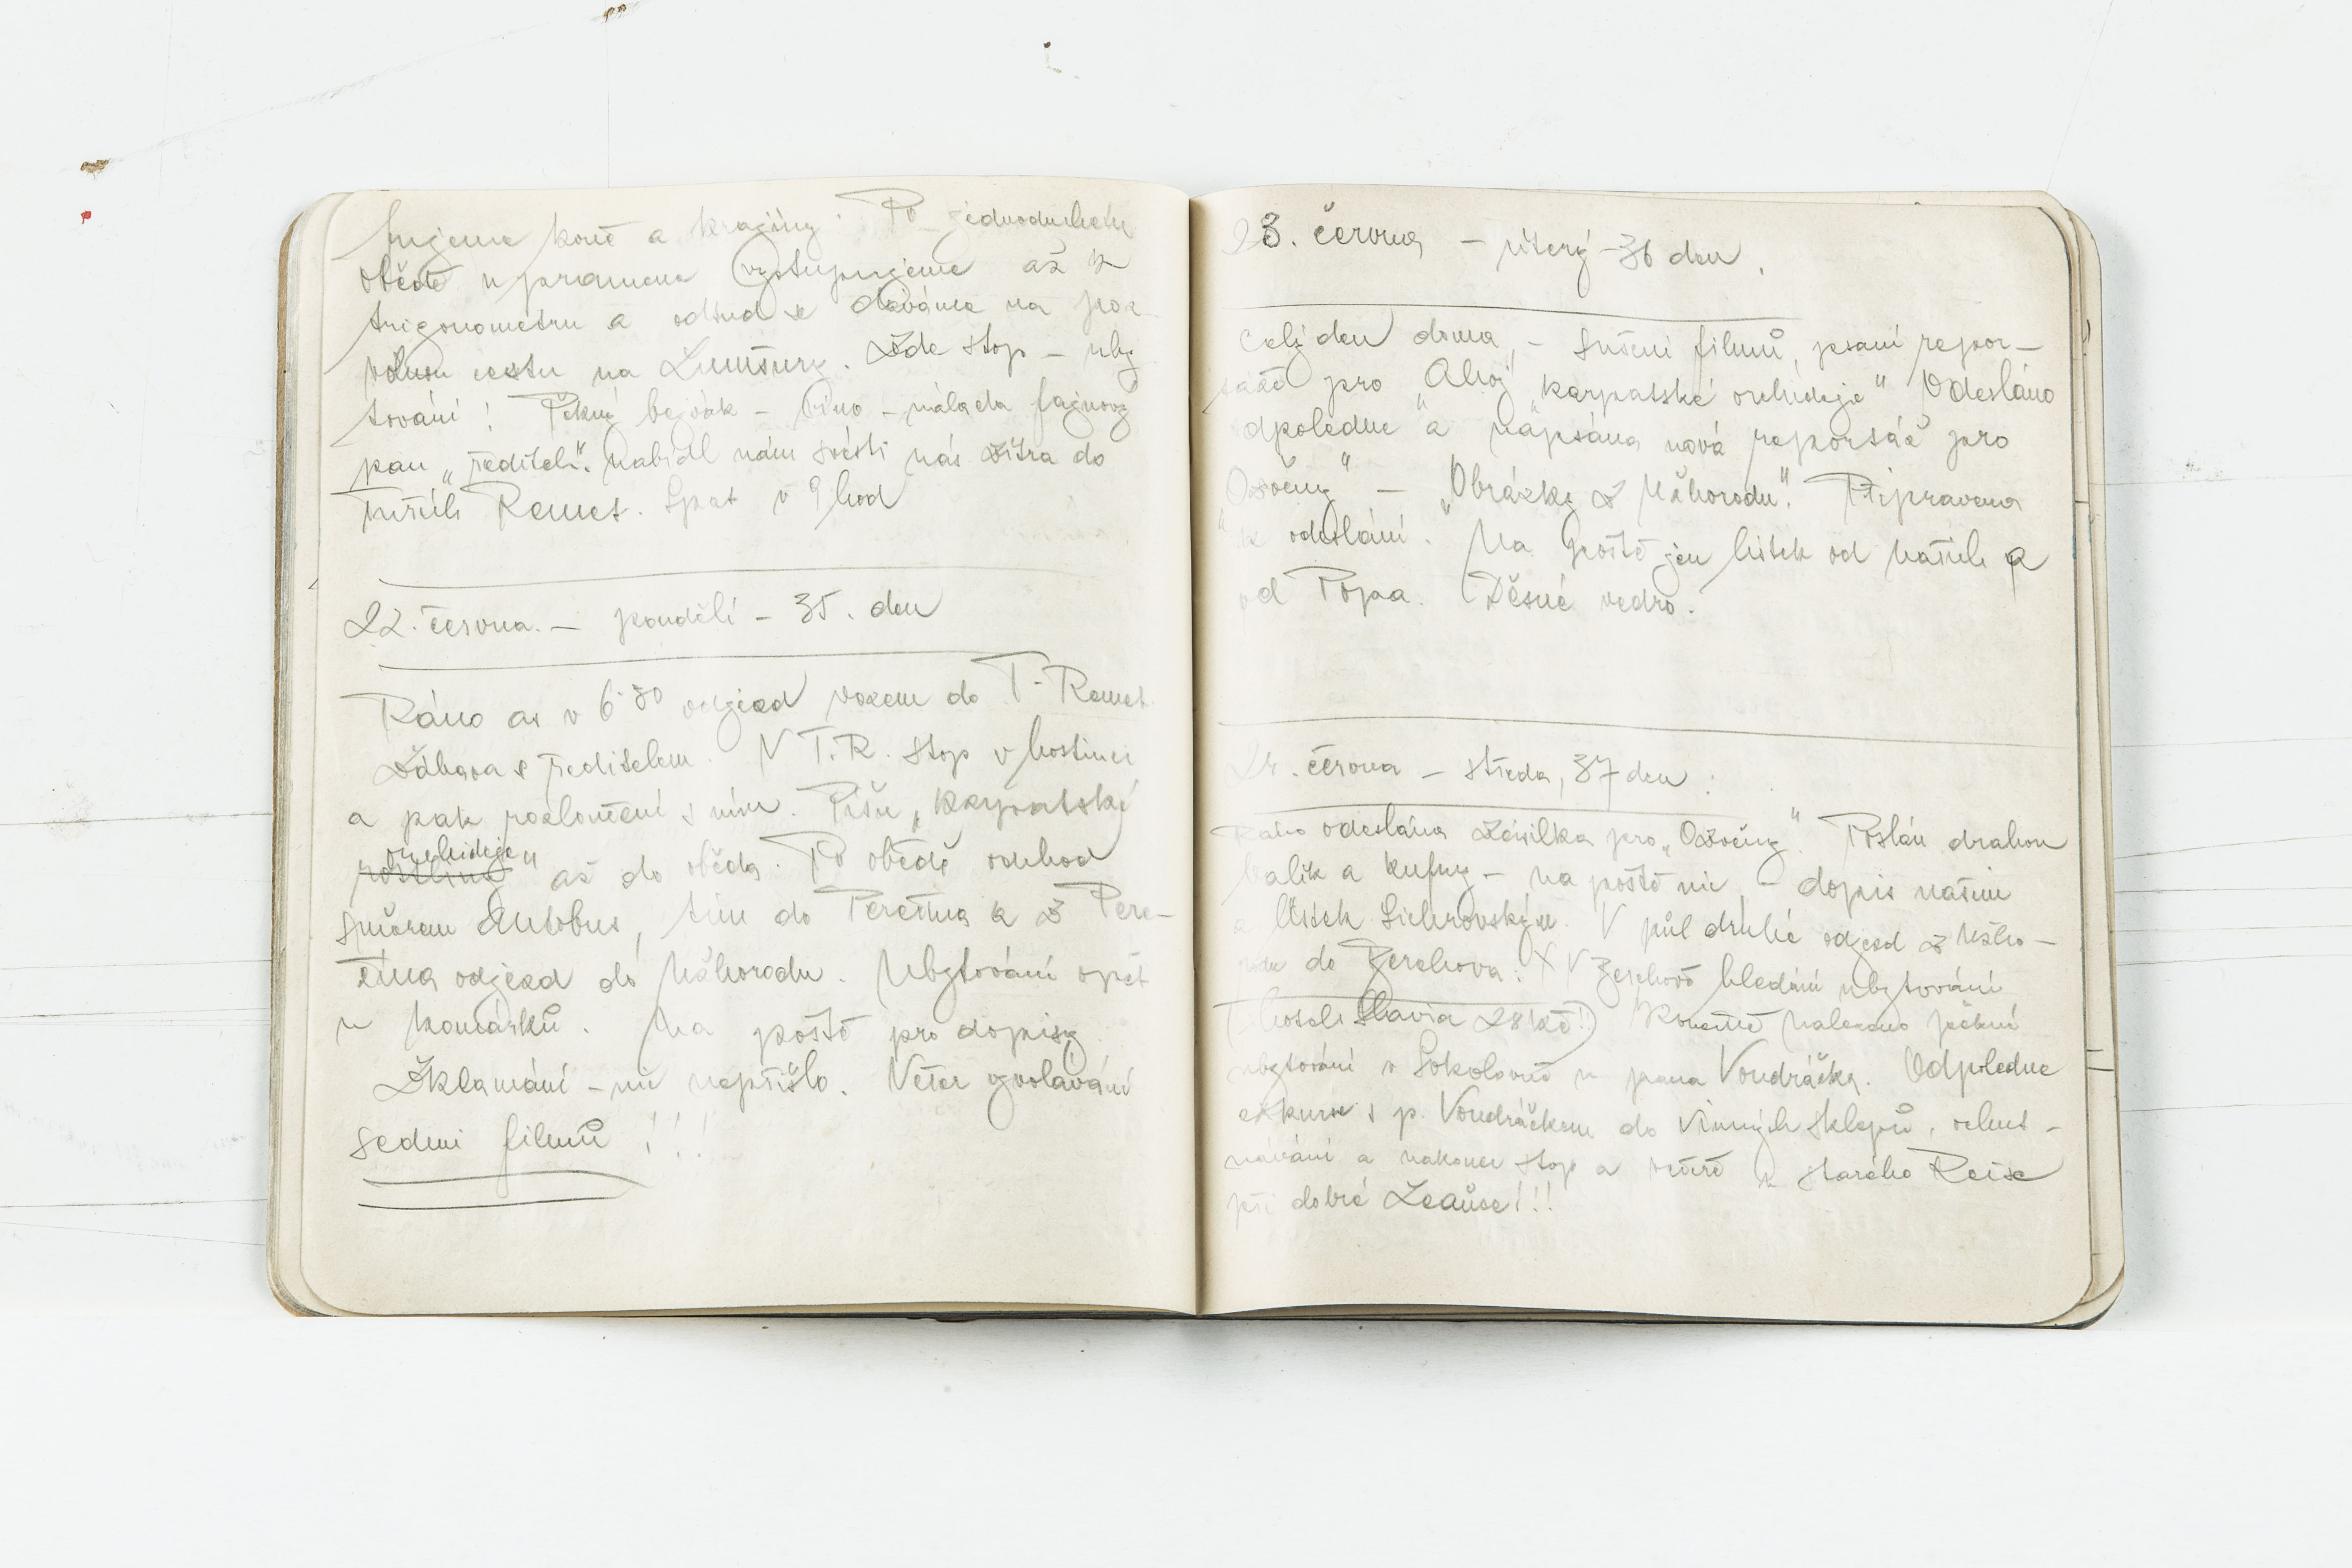 fujeme koně a krajiny. Po jednoduchém
obědě u pramene vystupujeme až k
trigonometru a odtud se dáváme na poz-
volnou cestu na Lumšury. Zde stop – uby
tování! Pěkný bejvák – víno – nálada fajnový
pan „ředitel". Nabídl nám svésti nás zítra do
Turiích Remet. Spat v 9 hod
22. června. – pondělí – 35. den
Ráno as v 6·30 odjezd vozem do T. Remet
Zábava s ředitelem. V T.R. stop v hostinci
a pak rozloučení s ním. Píšu „Karpatské
orchideje
rostliny" až do oběda. Po obědě odchod
směrem Autobus, tím do Perečina a z Pere-
čína odjezd do Užhorodu. Ubytování opět
u Komárků. Na poště pro dopisy
Zklamání – nic nepřišlo. Večer vyvolávání
sedmi filmů !!!
23. června – úterý – 36 den.
Celý den doma, – sušení filmů, psaní repor-
táže pro „Ahoj" „karpatské orchideje" Odesláno
odpoledne a napsána nová reportáž pro
„Ozvěny" – „Obrázky z Užhorodu". Připravena
k odeslání. Na poště jen lístek od našich a
od Popa. Děsné vedro.
24. června – středa, 37 den:
Ráno odeslána zásilka pro „Ozvěny". Poslán drahou
balík a kufry – na poště nic – dopis našim
a lístek Sichrovským. V půl druhé odjezd z Užho-
rodu do Berehova. X V Berehově hledání ubytování
(hotel Slavia 28 Kč!!) Konečně nalezeno pěkné
ubytování v Sokolovně u pana Vondráčka. Odpoledne
exkurse s p. Vondráčkem do Vinných sklepů, ochut-
návání a nakonec stop a večeře u starého Reise
při dobré Leaňce!!!